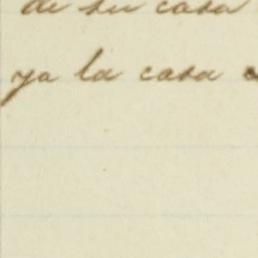 de su casa
ya la casa